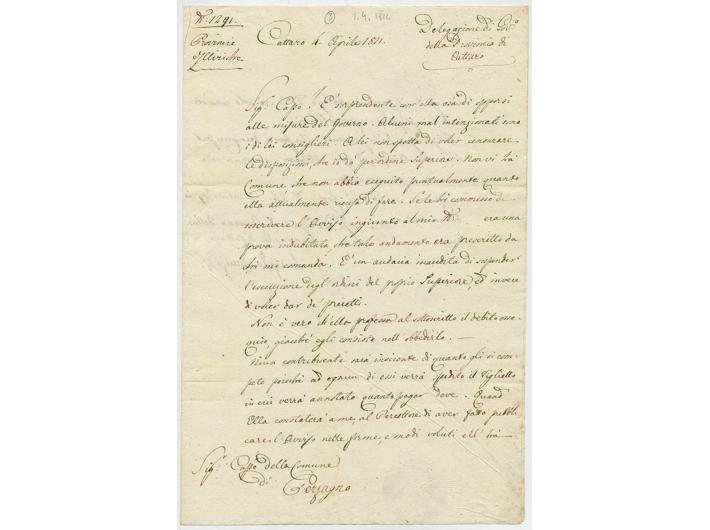 N.º 1291.
Provincie
Illiriche
③ 1.4.1811
Cattaro 4. Aprile 1811.
Delegazione di Gov.º
della Provincia di
Cattaro
Sig.r Cappo. E' sorprendente com'ella osa di opporsi
alle misure del Governo. Alcuni mal intenzionati sono
i di lei consiglieri. A lei non spetta di voler censurare
le disposizioni, che io dò per ordine Superiore. Non vi hà
Comune che non abbia eseguito puntualmente quanto
ella attualmente ricusa di fare. Se le hò commesso di
inscrivere l'Avviso ingiunto al mio N.º era una
prova indubitata che tale andamento era prescritto da
chi mi comanda. E' un audacia inaudita di sospender
l'esecuzione degl'ordini del proprio Superiore, ed invece
di voler dar de' precetti.
Non è vero ch'ella professa al sottoscritto il debito osse-
quio, giacchè egli consiste nell'obbedirlo. —
Niun contribuente sarà insciente di quanto gli si com-
pete poichè ad ognun di essi verrà spedito il Viglietto
in cui verrà annotato quanto pagar deve. Quand
Ella constaterà a me, al Percettore di aver fatto pubbli-
care l'Avviso nelle forme, e modi voluti ell' hà —
Sig.r Cappo della Comune
di Perzagno